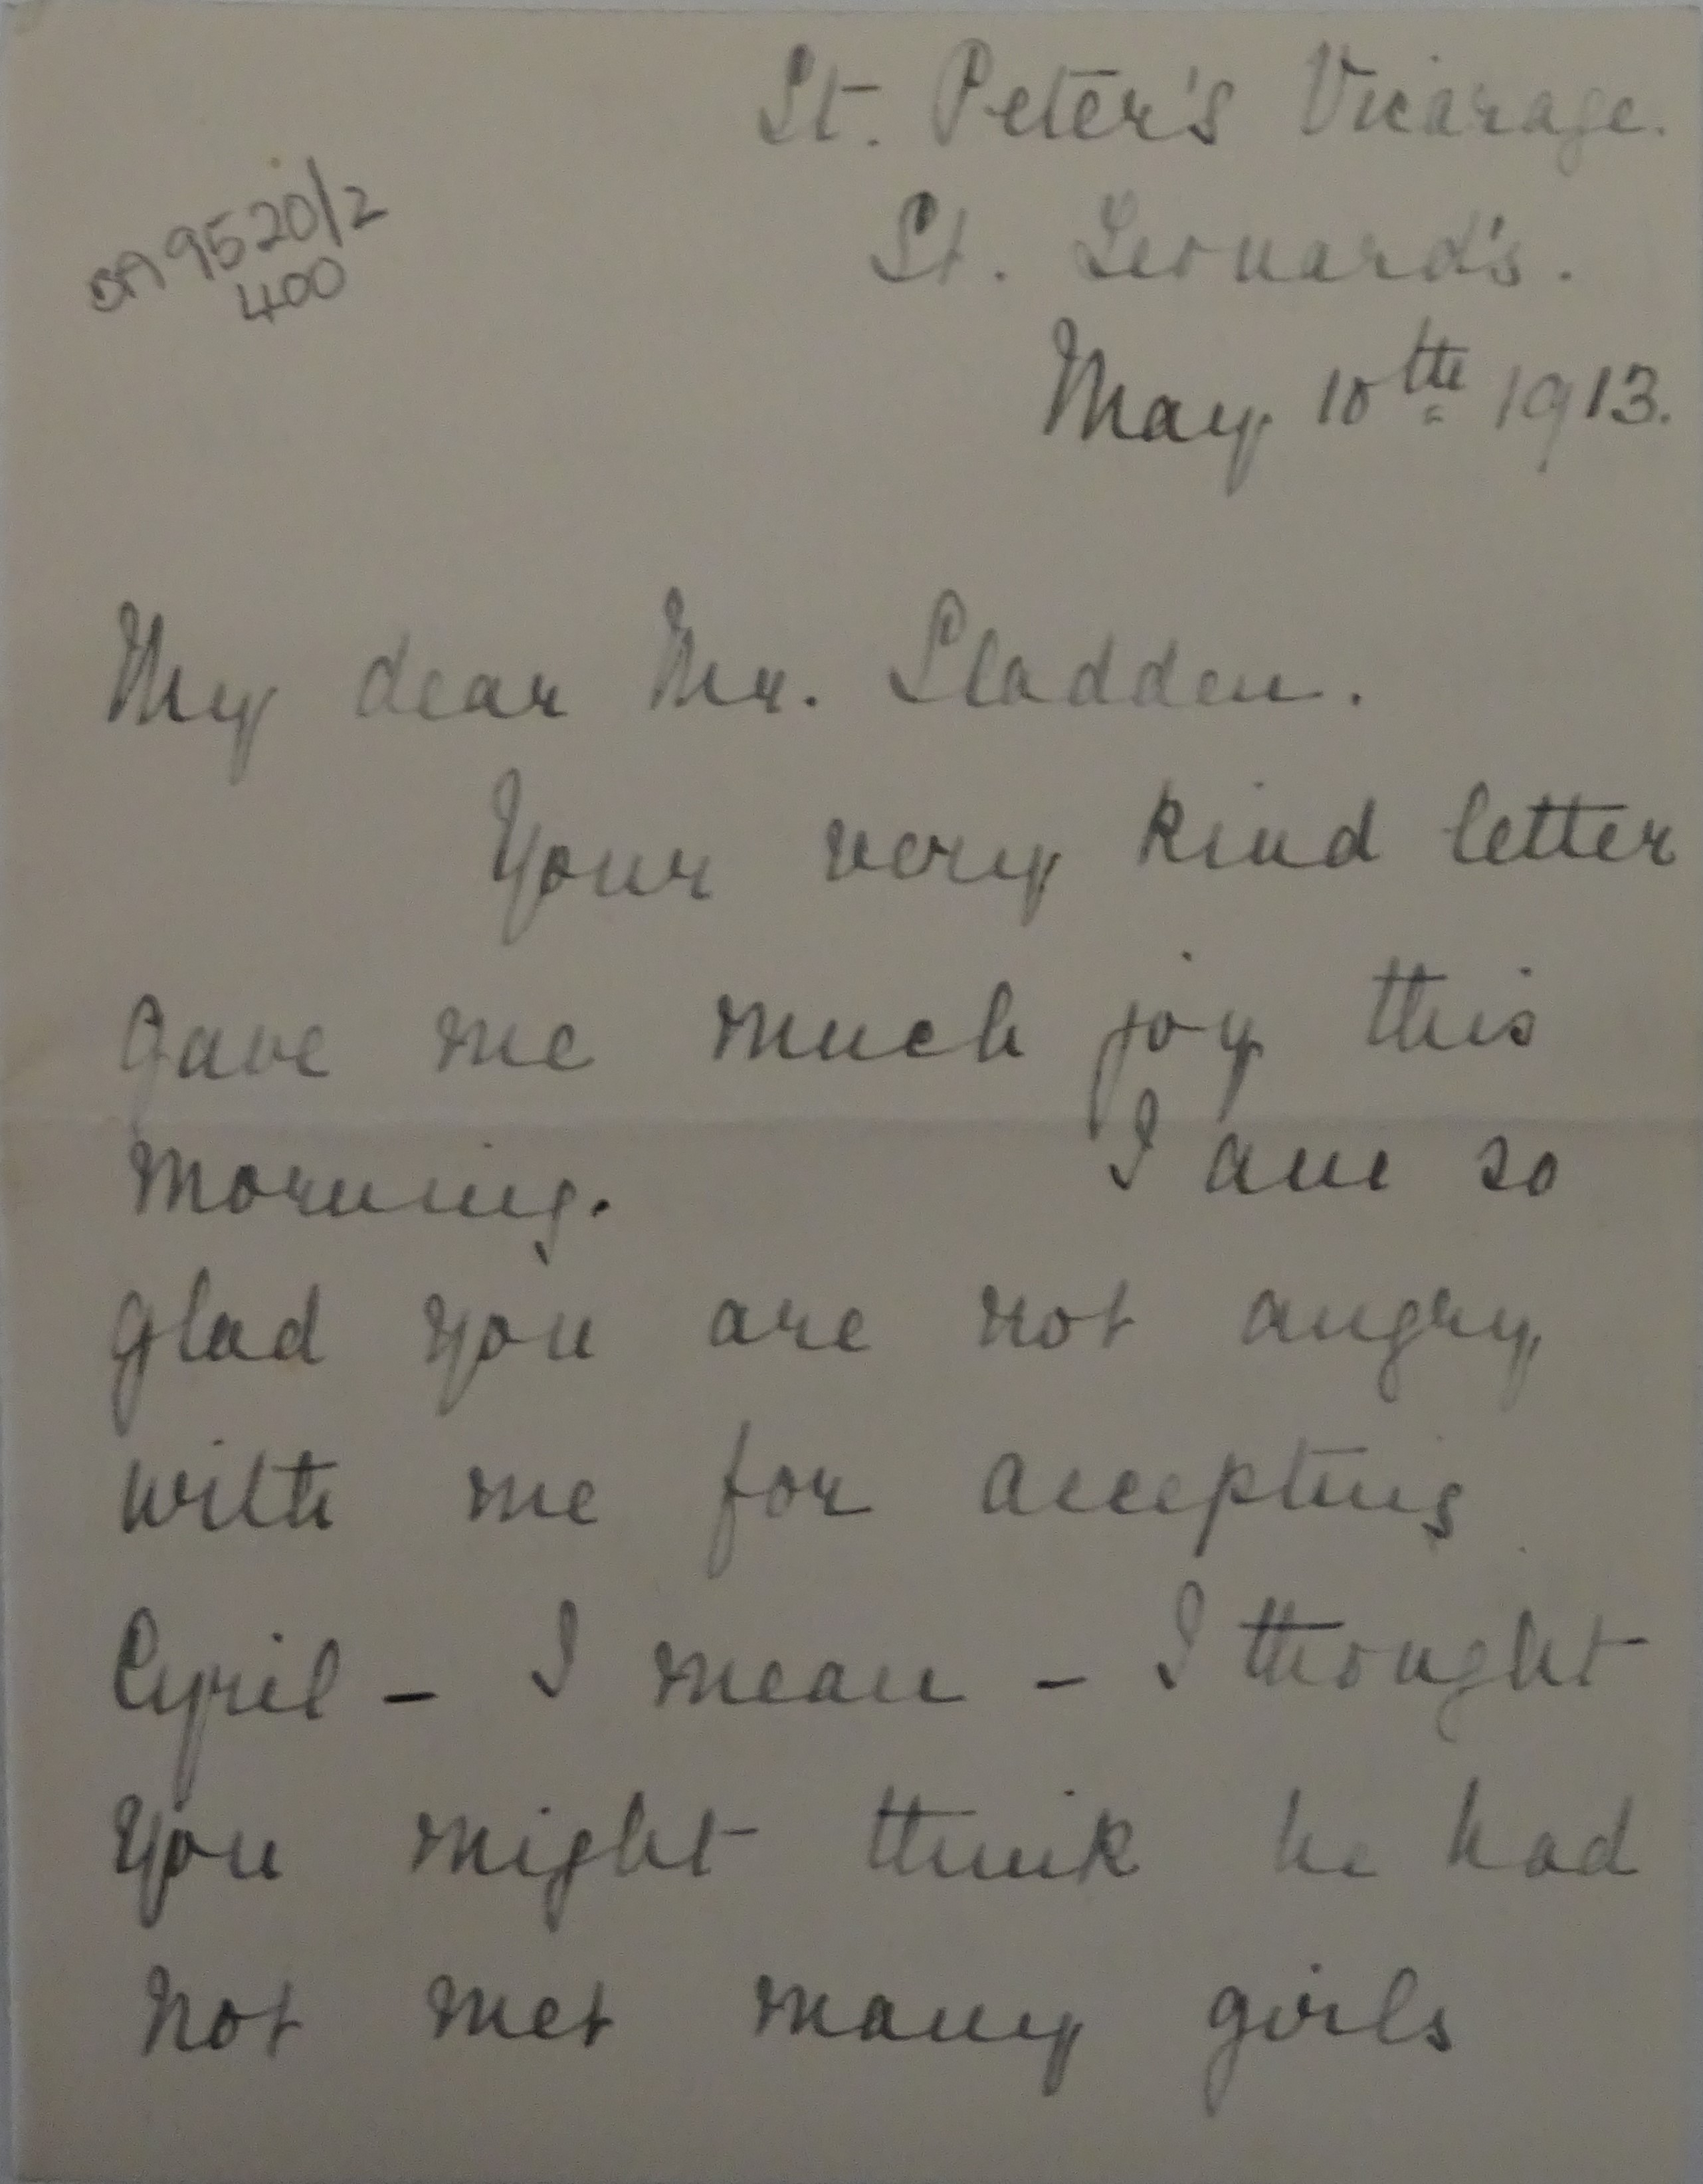 St. Peter's Vicarage.
St. Leonard's.
May 10th 1913.
BA 9520/2
400
My dear Mr. Sladden.
Your very kind letter
gave me much joy this
morning. I am so
glad you are not angry
with me for accepting
Cyril – I mean – I thought
you might think he had
not met many girls